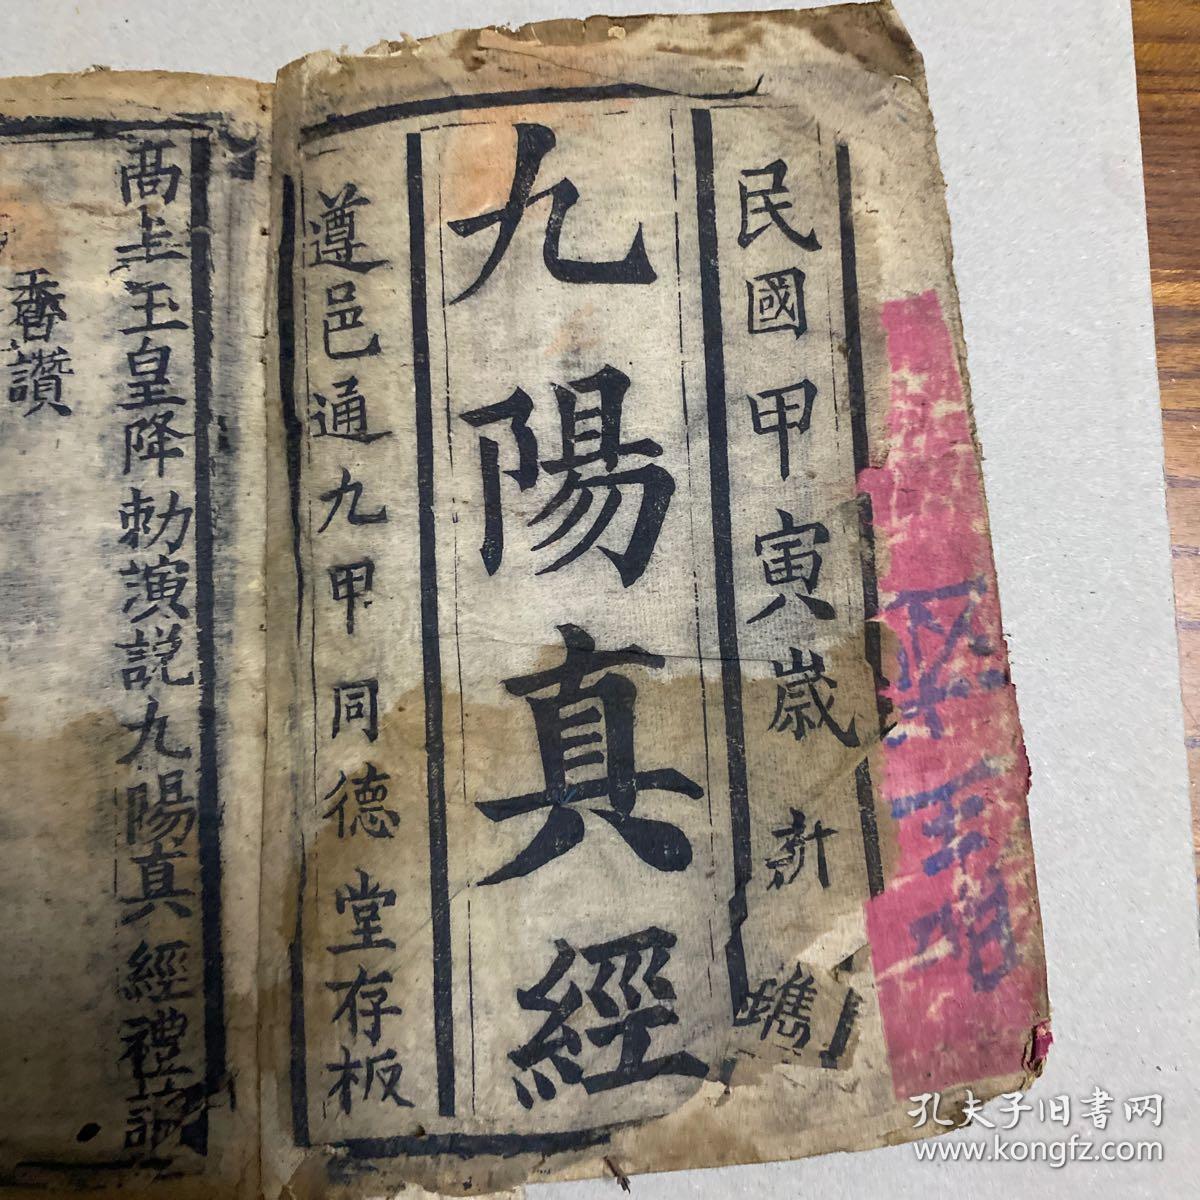 民國甲寅歲新鐫
九陽真經
遵邑通九甲同德堂存板
高上玉皇降勅演説九陽真經禮請
香讚
孔夫子旧書网
www.kongfz.com